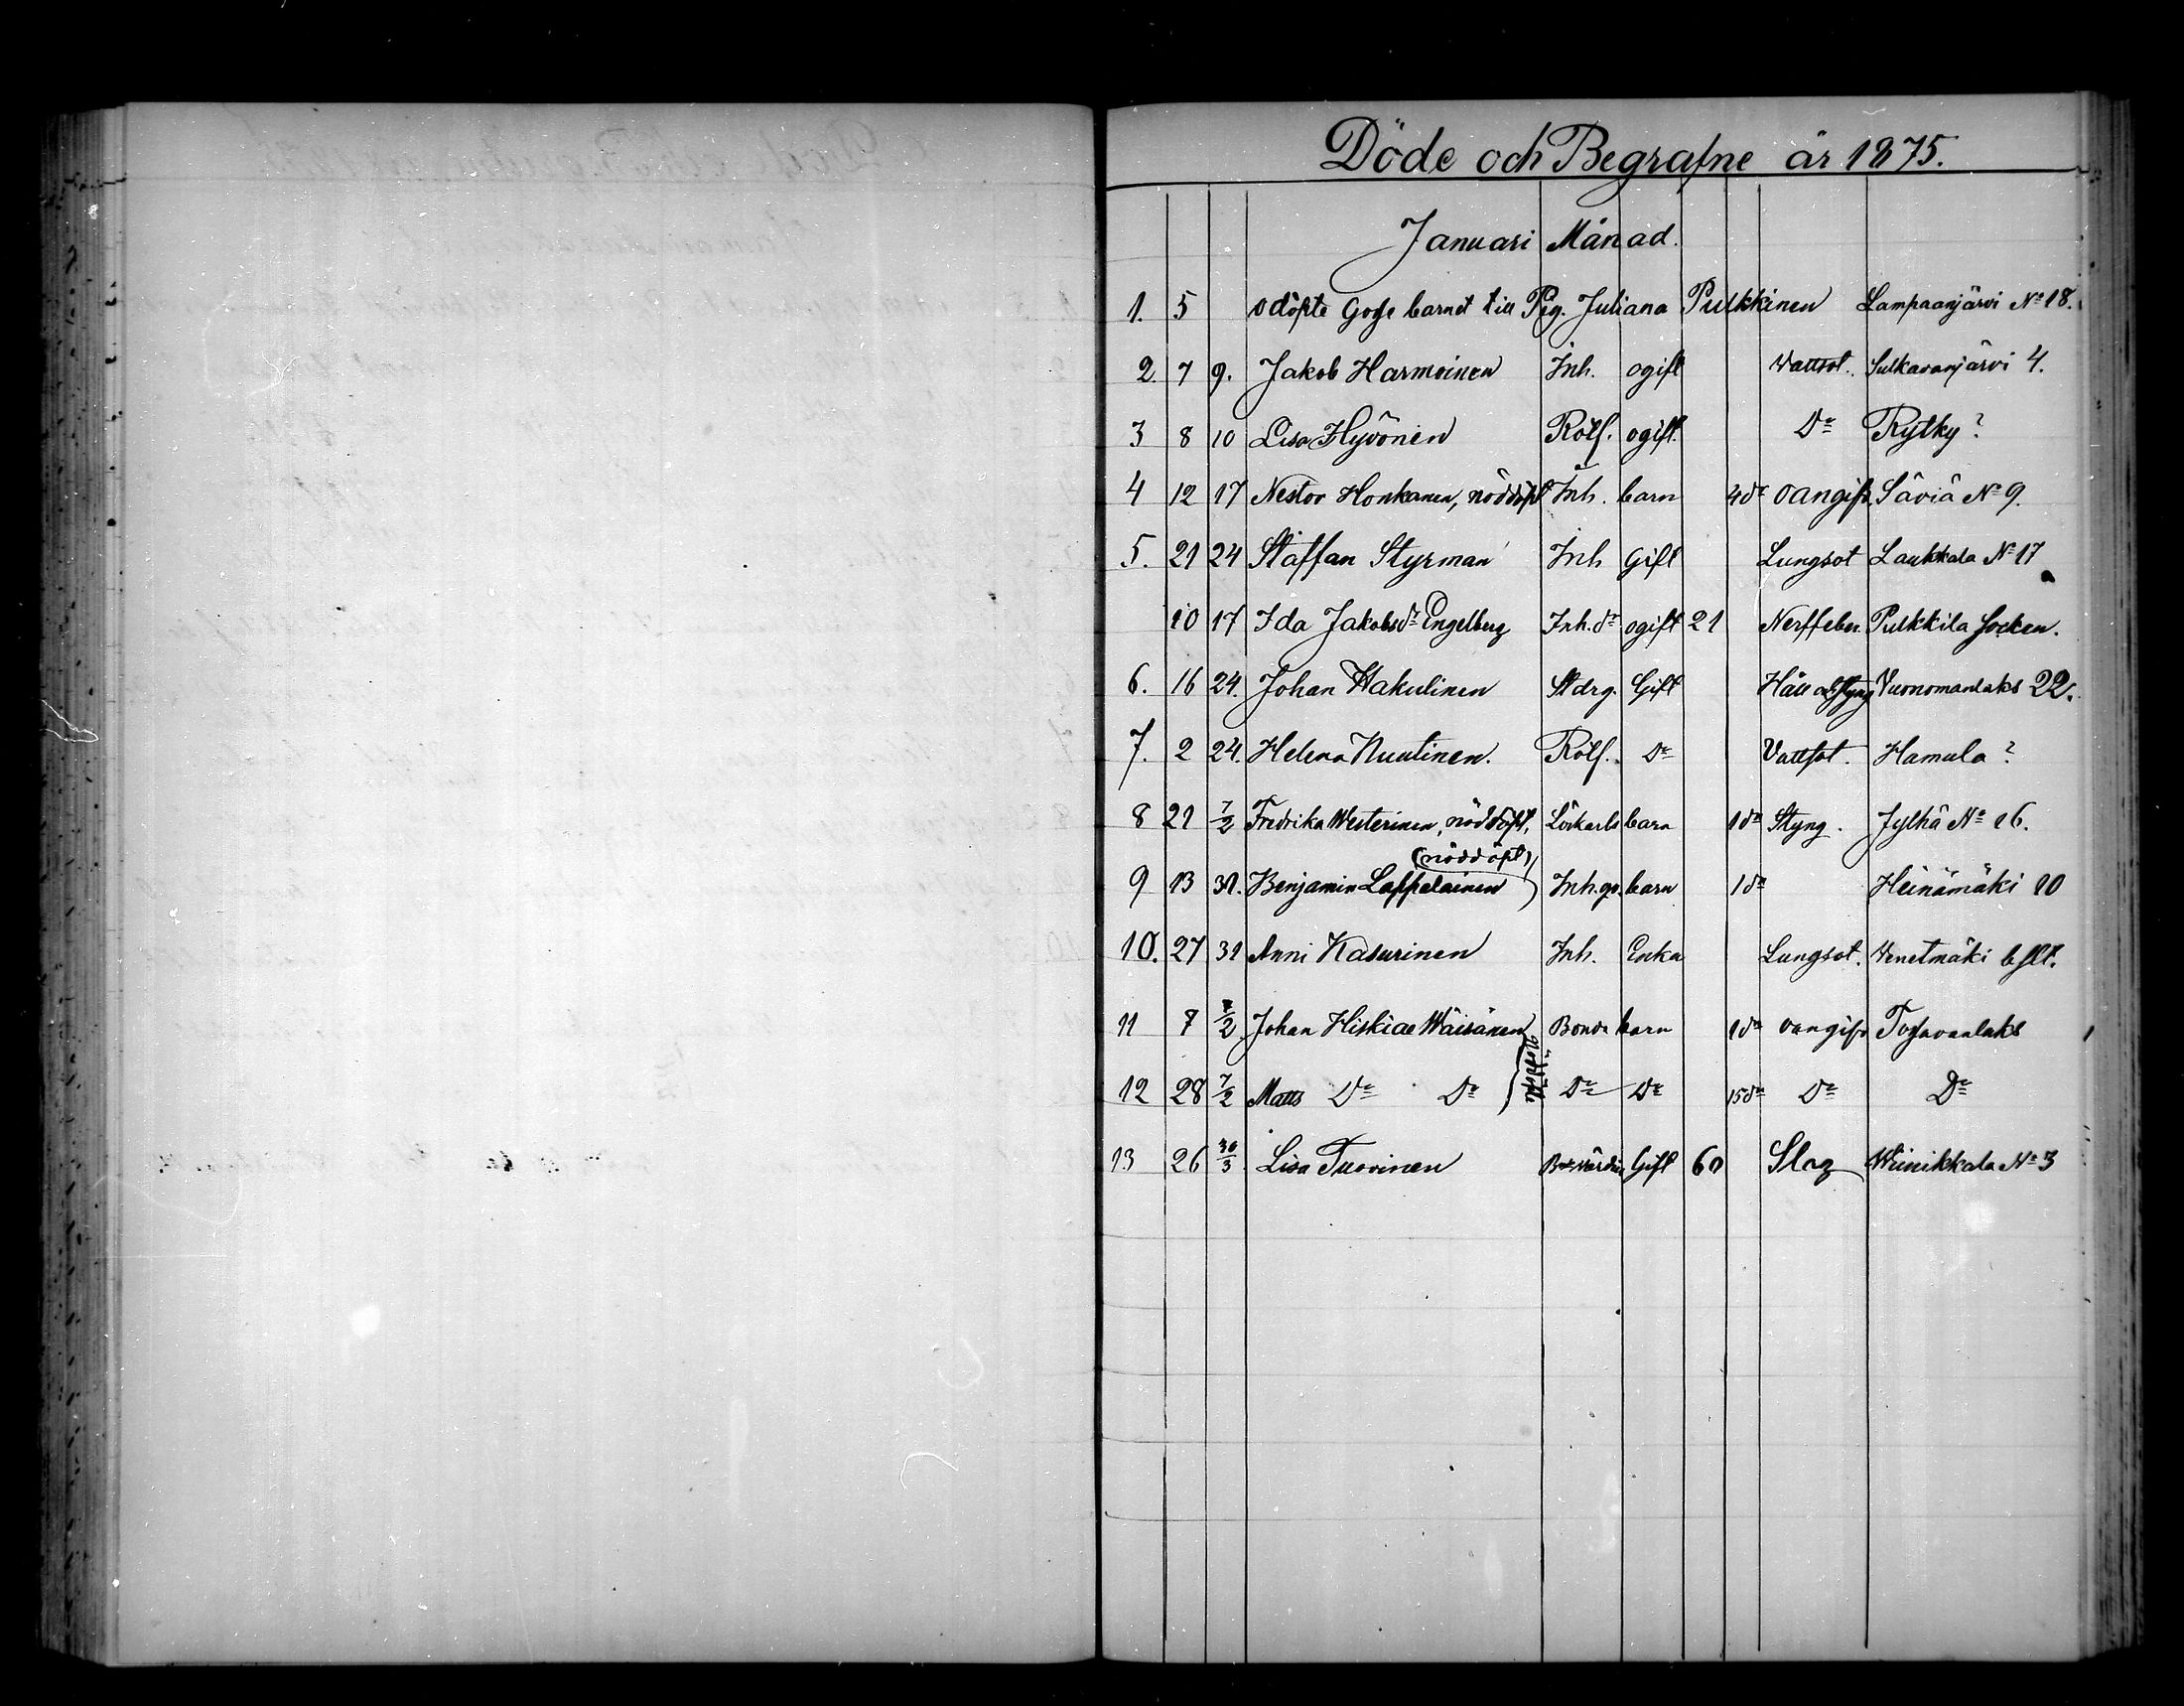 Döde och Begrafne år 1875.
Januari Månad.
1. 5 odöpte Gosse barnet till Pig. Juliana Pulkkinen Lampaanjärvi No 18.
2. 7 9. Jakob Harmoinen Inh. ogift Vattsot. Sulkavanjärvi 4.
3 8 10 Lisa Hyvönen Rotf. ogift. Do Rytky?
4 12 17 Nestor Honkanen, nöddöpt Inh. barn 4 dr oangifv. Säviä No 9.
5. 21 24 Staffan Styrman Inh Gift Lungsot Laukkala No 17
10 17 Ida Jakobsdr Engelberg Inh. dr ogift 21 Nerffeber. Pulkkila Socken.
6. 16 24. Johan Hakulinen Stdrg. Gift Håll och Styng Vuonomanlaks 22.
7. 2 24. Helena Nuutinen. Rotf. Do Vattsot. Hamula?
8 21 7/2 Fredrika Westerinen, nöddöpt, Löskarls barn 1 dr Styng. Jylhä No 16.
(nöddöpt)
9 13 31. Benjamin Lappalainen Inh. go. barn 1 dr Heinämäki 10
10. 27 31 Anni Kasurinen Inh. Enka Lungsot. Venetmäki bflt.
11 7 7/2 Johan Hiskiae Wäisänen Bonde barn 1 dr oangifv Tossavanlaks
nöddöpte
12 28 7/2 Matts Do Do Do Do 15 dr Do Do
13 26 30/3 Lisa Tuovinen Bdevärdin Gift 60 Slag Wiinikkala No 3